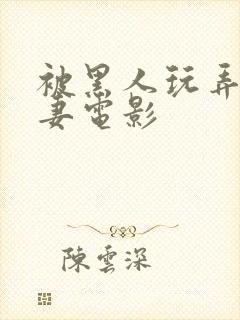 被黑人玩弄
妻電影
陳雲深